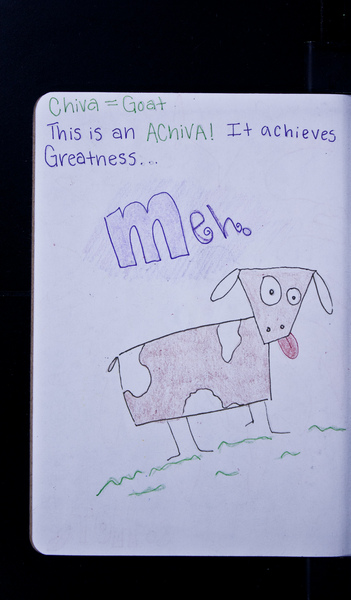 Chiva = Goat
This is an AChiVA! It achieves
Greatness...
Meh.